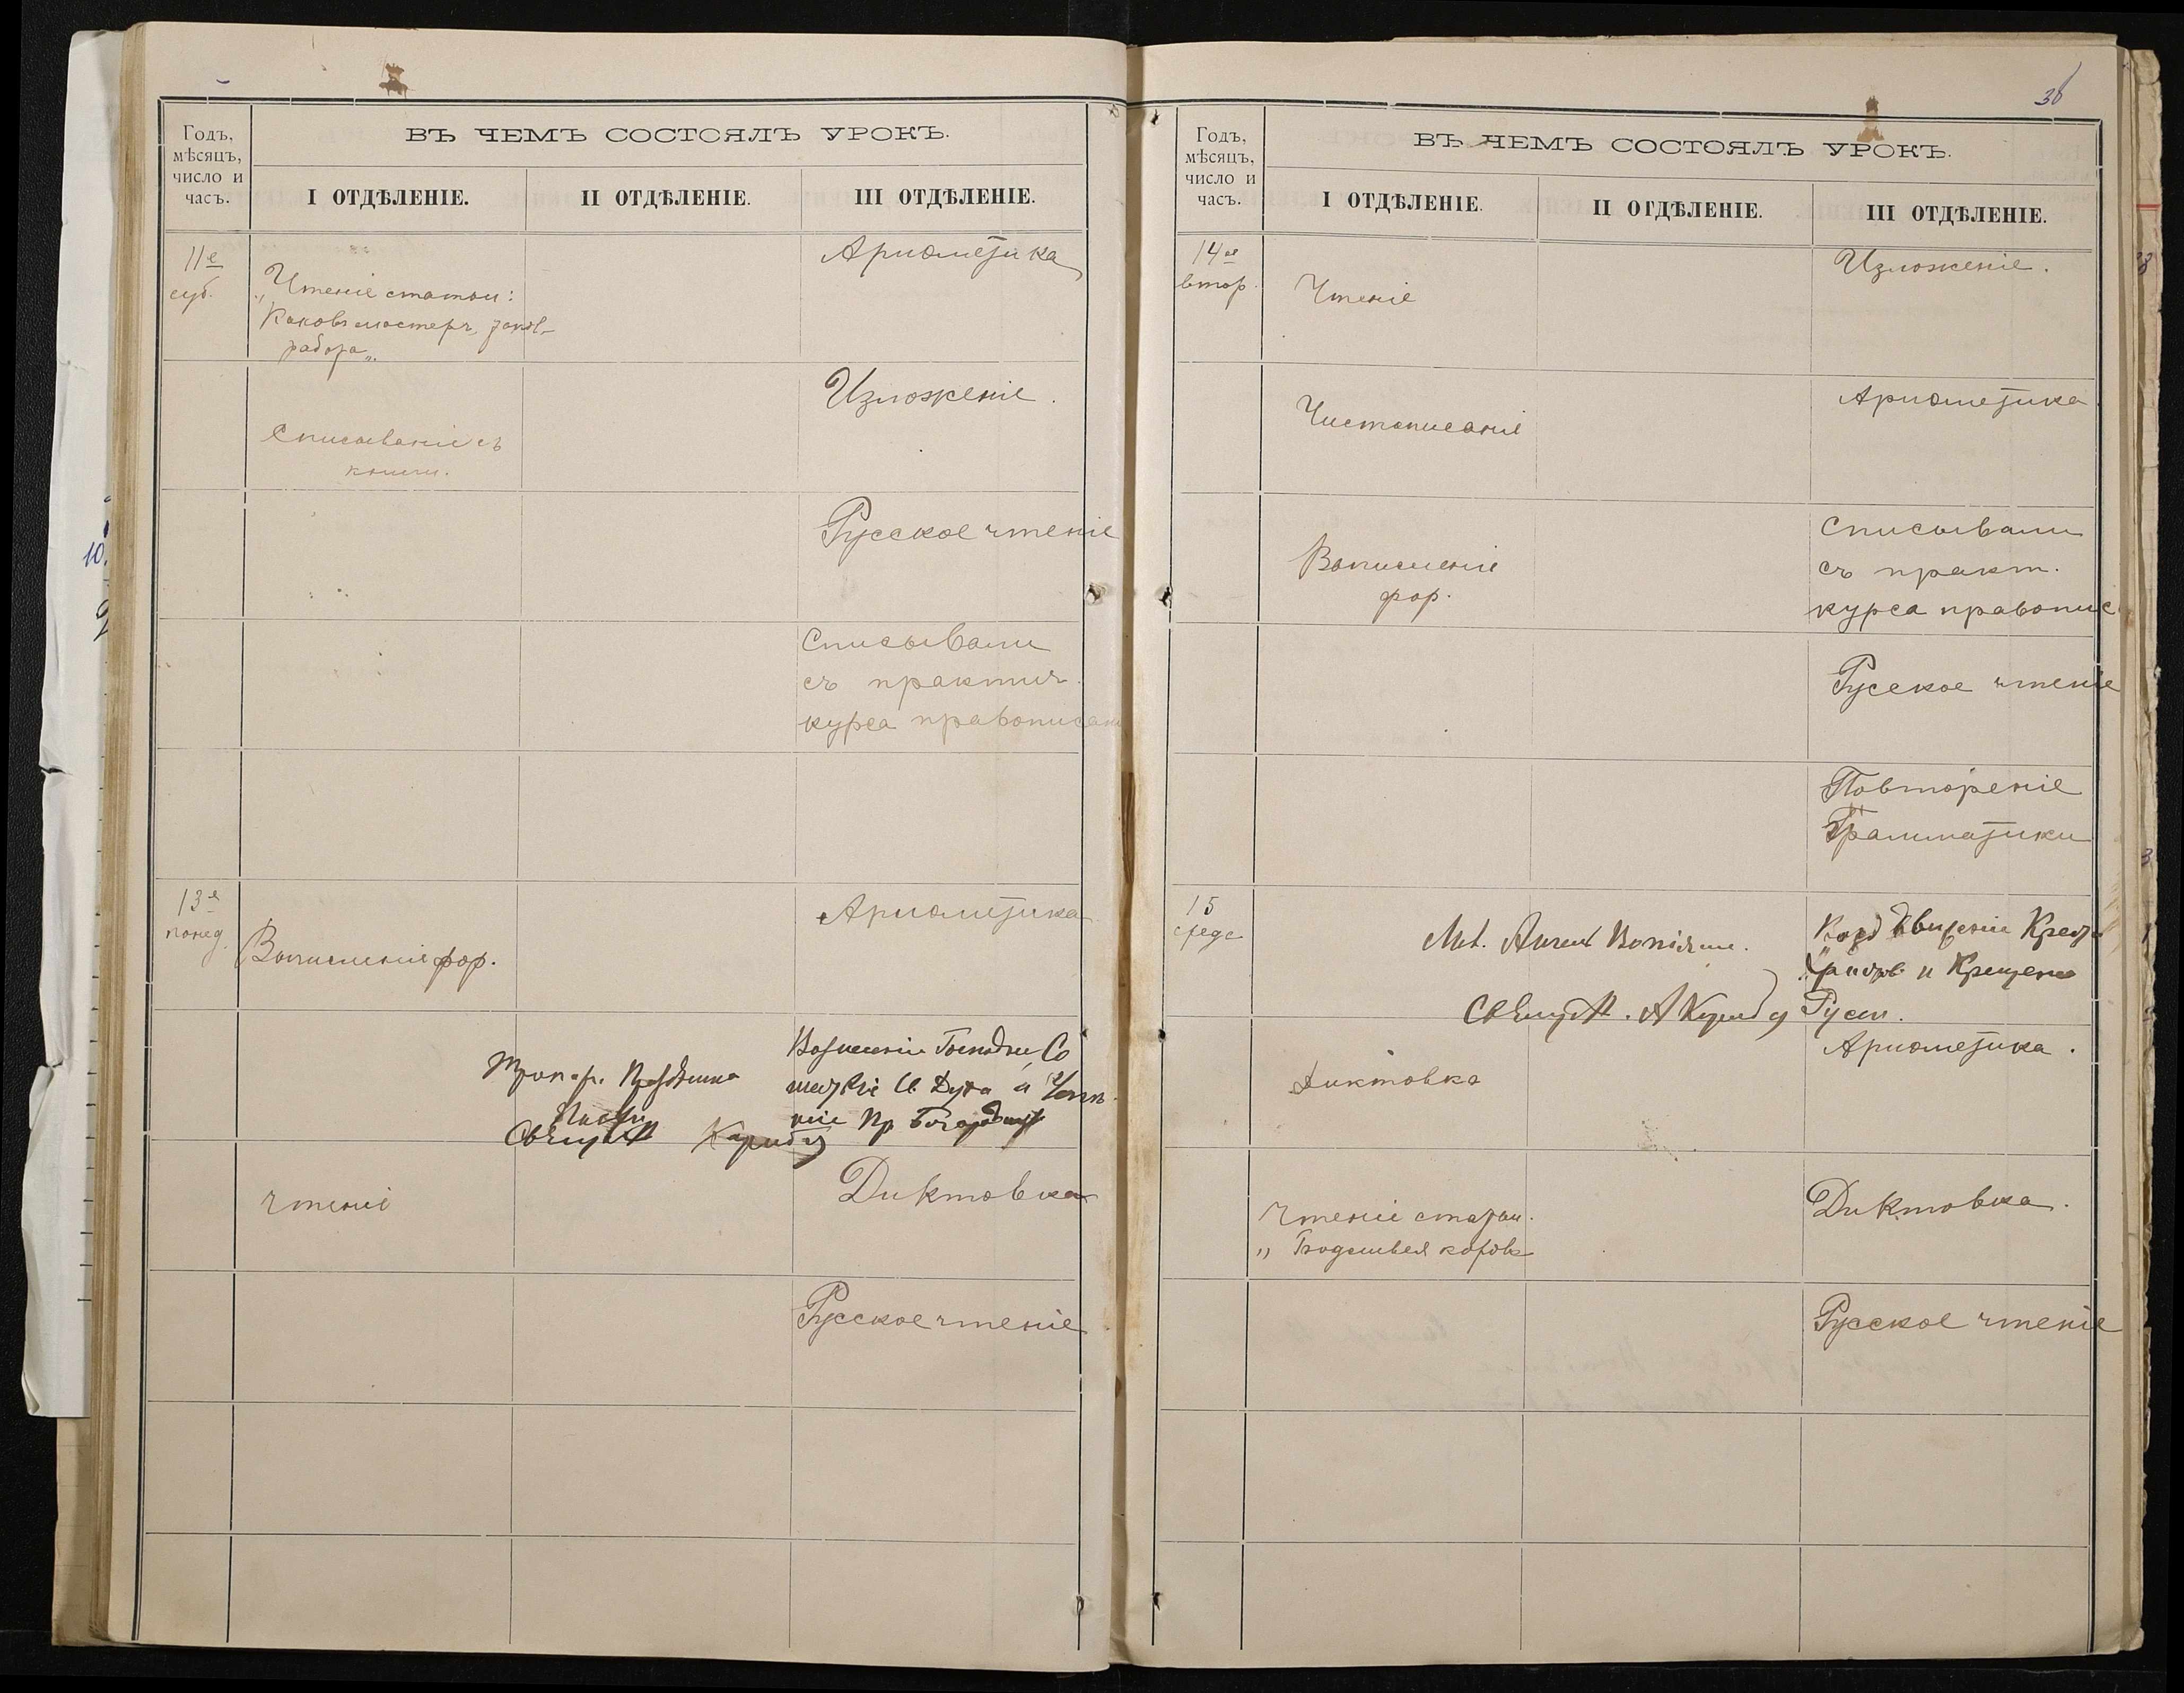 Годъ,
мѣсяцъ,
число и
часъ.
ВЪ ЧЕМЪ СОСТОЯЛЪ УРОКЪ.
I ОТДѢЛЕНІЕ.
II ОТДѢЛЕНІЕ.
III ОТДѢЛЕНІЕ.
11е
суб.
„Чтеніе статьи:
Каковъ мастеръ, такова
работа„.
Ариѳметика
Списываніе съ
книги.
Изложеніе.
Русское чтеніе
Списывали
съ практич.
курса правописан
13е
понед.
Вычисленіе
Ариѳметика
Тропарь
Пасхи
Вознесеніе Господне, Со
шествіе Св. Духа и Успе
ніе Пр. Богородицы
чтеніе
Диктовка
Русское чтеніе
36
Годъ,
мѣсяцъ,
число и
часъ.
ВЪ ЧЕМЪ СОСТОЯЛЪ УРОКЪ.
I ОТДѢЛЕНІЕ.
II ОТДѢЛЕНІЕ.
III ОТДѢЛЕНІЕ.
14ое
втор.
Чтеніе
Изложеніе.
Чистописаніе
Ариѳметика
Вычисленіе
Списывали
съ практ.
курса правопис
Русское чтеніе
Повтореніе
Грамматики
15
среда
Мол. Ангелу
Воздвиженіе Креста
и Крещеніе
Руси.
Диктовка
Ариѳметика.
Чтеніе статьи.
Диктовка.
Русское чтеніе